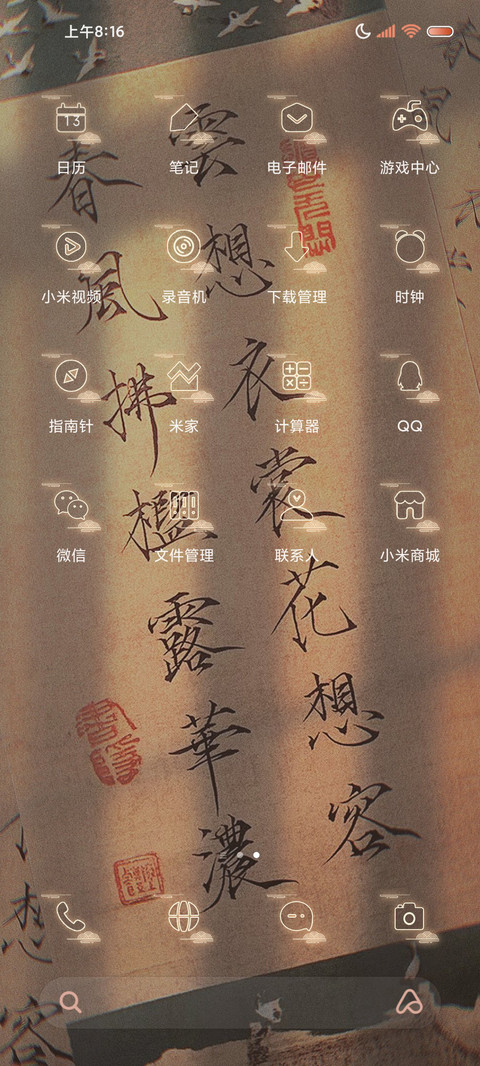 上午8:16
13
日历
笔记
电子邮件
游戏中心
小米视频
录音机
下载管理
时钟
指南针
米家
计算器
QQ
微信
文件管理
联系人
小米商城
雲想衣裳花想容
春風拂檻露華濃